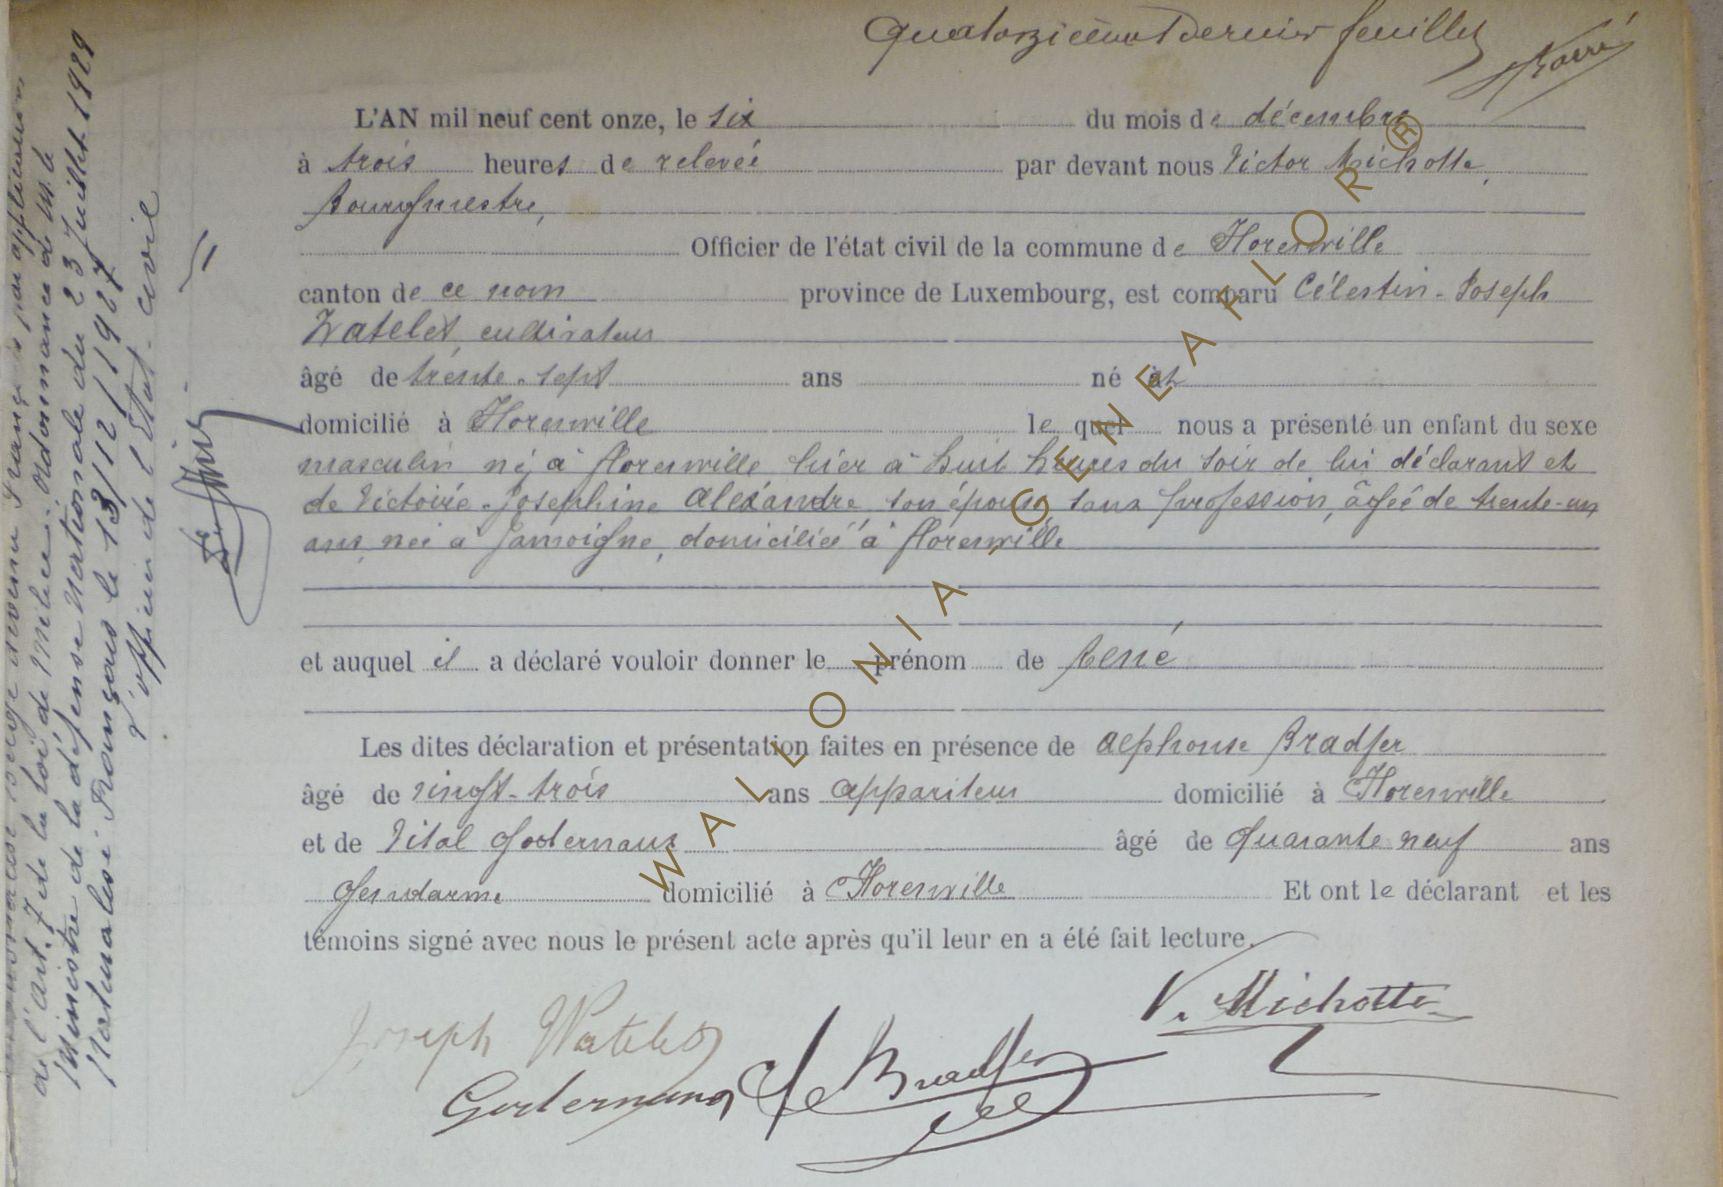 Quatorzième et dernier feuillet
L'AN mil neuf cent onze, le six du mois de décembre
à trois heures de relevée par devant nous Victor Michotte,
Bourgmestre,
Officier de l'état civil de la commune de Florenville
canton de ce nom province de Luxembourg, est comparu Célestin-Joseph
Watelet, cultivateur
âgé de trente-sept ans né et
domicilié à Florenville lequel nous a présenté un enfant du sexe
masculin né à Florenville hier à huit heures du soir de lui déclarant et
de Victoire-Josephine Alexandre son épouse, sans profession, âgée de trente-un
ans, née à Jamoigne, domiciliée à Florenville
et auquel il a déclaré vouloir donner le prénom de René
Les dites déclaration et présentation faites en présence de Alphonse Bradfer
âgé de vingt-trois ans appariteur domicilié à Florenville
et de Vital Godernaux âgé de quarante neuf ans
Gendarme domicilié à Florenville Et ont le déclarant et les
témoins signé avec nous le présent acte après qu'il leur en a été fait lecture.
Joseph Watelet
V. Michotte
Godernaux
Bradfer
de l'art. 7 de la loi de Milice. Ordonnance de M. le
Ministre de la défense Nationale du 23 Juillet 1929
Naturalisé Français le 13/12/1927
L'officier de l'Etat-civil
WALLONIA, GENEAFLOR®